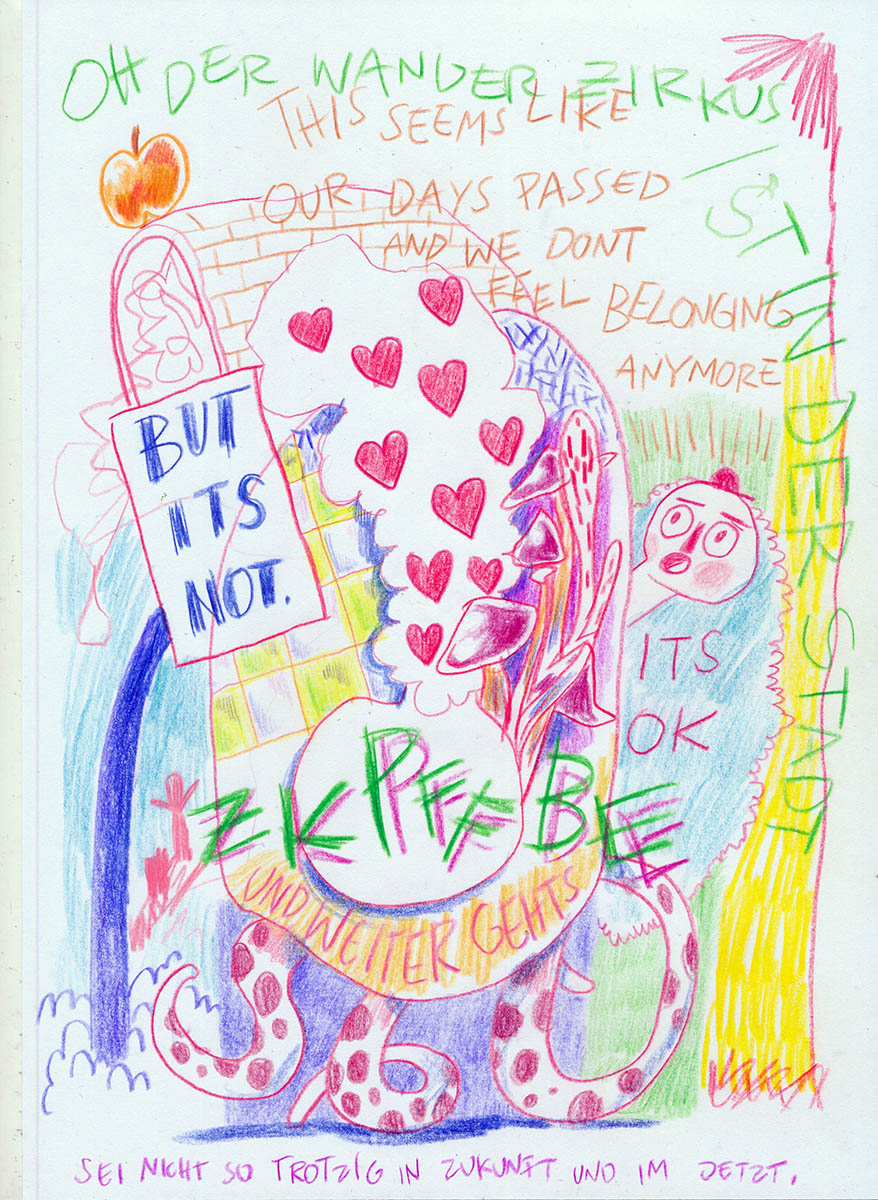 OH DER WANDER ZIRKUS
IST IN DER STADT
THIS SEEMS LIKE
OUR DAYS PASSED
AND WE DONT
FEEL BELONGING
ANYMORE
BUT
ITS
NOT.
ITS
OK
UND WEITER GEHTS
SEI NICHT SO TROTZIG IN ZUKUNFT UND IM JETZT.